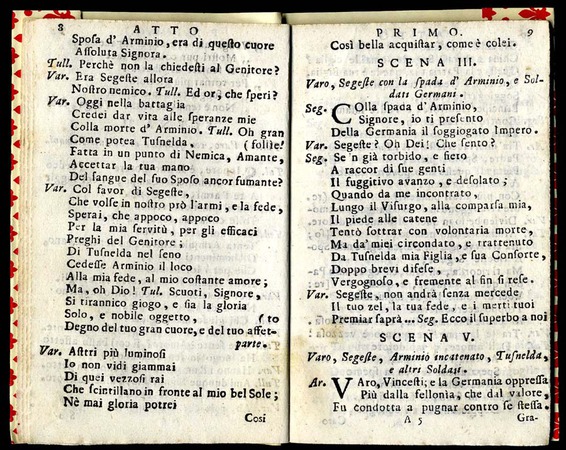 8 ATTO
Sposa d' Arminio, era di questo cuore
Assoluta Signora.
Tull. Perchè non la chiedesti al Genitore?
Var. Era Segeste allora
Nostro nemico. Tull. Ed or, che speri?
Var. Oggi nella battaglia
Credei dar vita alle speranze mie
Colla morte d' Arminio. Tull. Oh gran
Come potea Tusnelda, (follìe!
Fatta in un punto di Nemica, Amante,
Accettar la tua mano
Del sangue del suo Sposo ancor fumante?
Var. Col favor di Segeste,
Che volse in nostro prò l'armi, e la fede,
Sperai, che appoco, appoco
Per la mia servitù, per gli efficaci
Preghi del Genitore;
Di Tusnelda nel seno
Cedesse Arminio il loco
Alla mia fede, al mio costante amore;
Ma, oh Dio! Tul. Scuoti, Signore,
Sì tirannico giogo, e sia la gloria
Solo, e nobile oggetto, (to
Degno del tuo gran cuore, e del tuo affet-
parte.
Var. Astri più luminosi
Io non vidi giammai
Di quei vezzosi rai
Che scintillano in fronte al mio bel Sole;
Nè mai gloria potrei
Così
PRIMO. 9
Così bella acquistar, come è colei.
SCENA III.
Varo, Segeste con la spada d' Arminio, e Sol-
dati Germani.
Seg. COlla spada d' Arminio,
Signore, io ti presento
Della Germania il soggiogato Impero.
Var. Segeste? Oh Dei! Che sento?
Seg. Se'n già torbido, e fiero
A raccor di sue genti
Il fuggitivo avanzo, e desolato;
Quando da me incontrato,
Lungo il Visurgo, alla comparsa mia,
Il piede alle catene
Tentò sottrar con volontaria morte,
Ma da' miei circondato, e trattenuto
Da Tusnelda mia Figlia, e sua Consorte,
Doppo brevi difese,
Vergognoso, e fremente al fin si rese.
Var. Segeste, non andrà senza mercede
Il tuo zel, la tua fede, e i merti tuoi
Premiar saprà... Seg. Ecco il superbo a noi
SCENA V.
Varo, Segeste, Arminio incatenato, Tusnelda,
e altri Soldati.
Ar. VAro, Vincesti; e la Germania oppressa
Più dalla fellonìa, che dal valore,
Fu condotta a pugnar contro se stessa.
A 5 Gra-